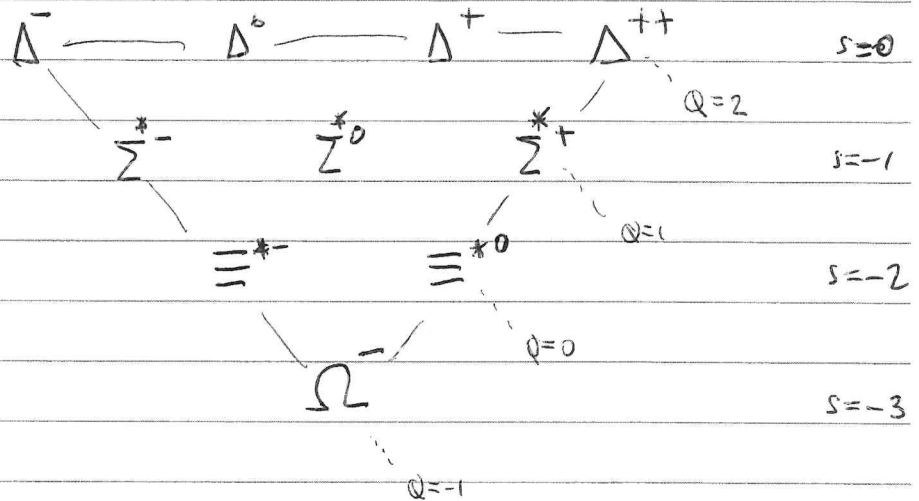 Δ⁻ Δ⁰ Δ⁺ Δ⁺⁺ s=0
Q=2
Σ*⁻ Σ*⁰ Σ*⁺ s=-1
Q=1
Ξ*⁻ Ξ*⁰ s=-2
Q=0
Ω⁻ s=-3
Q=-1